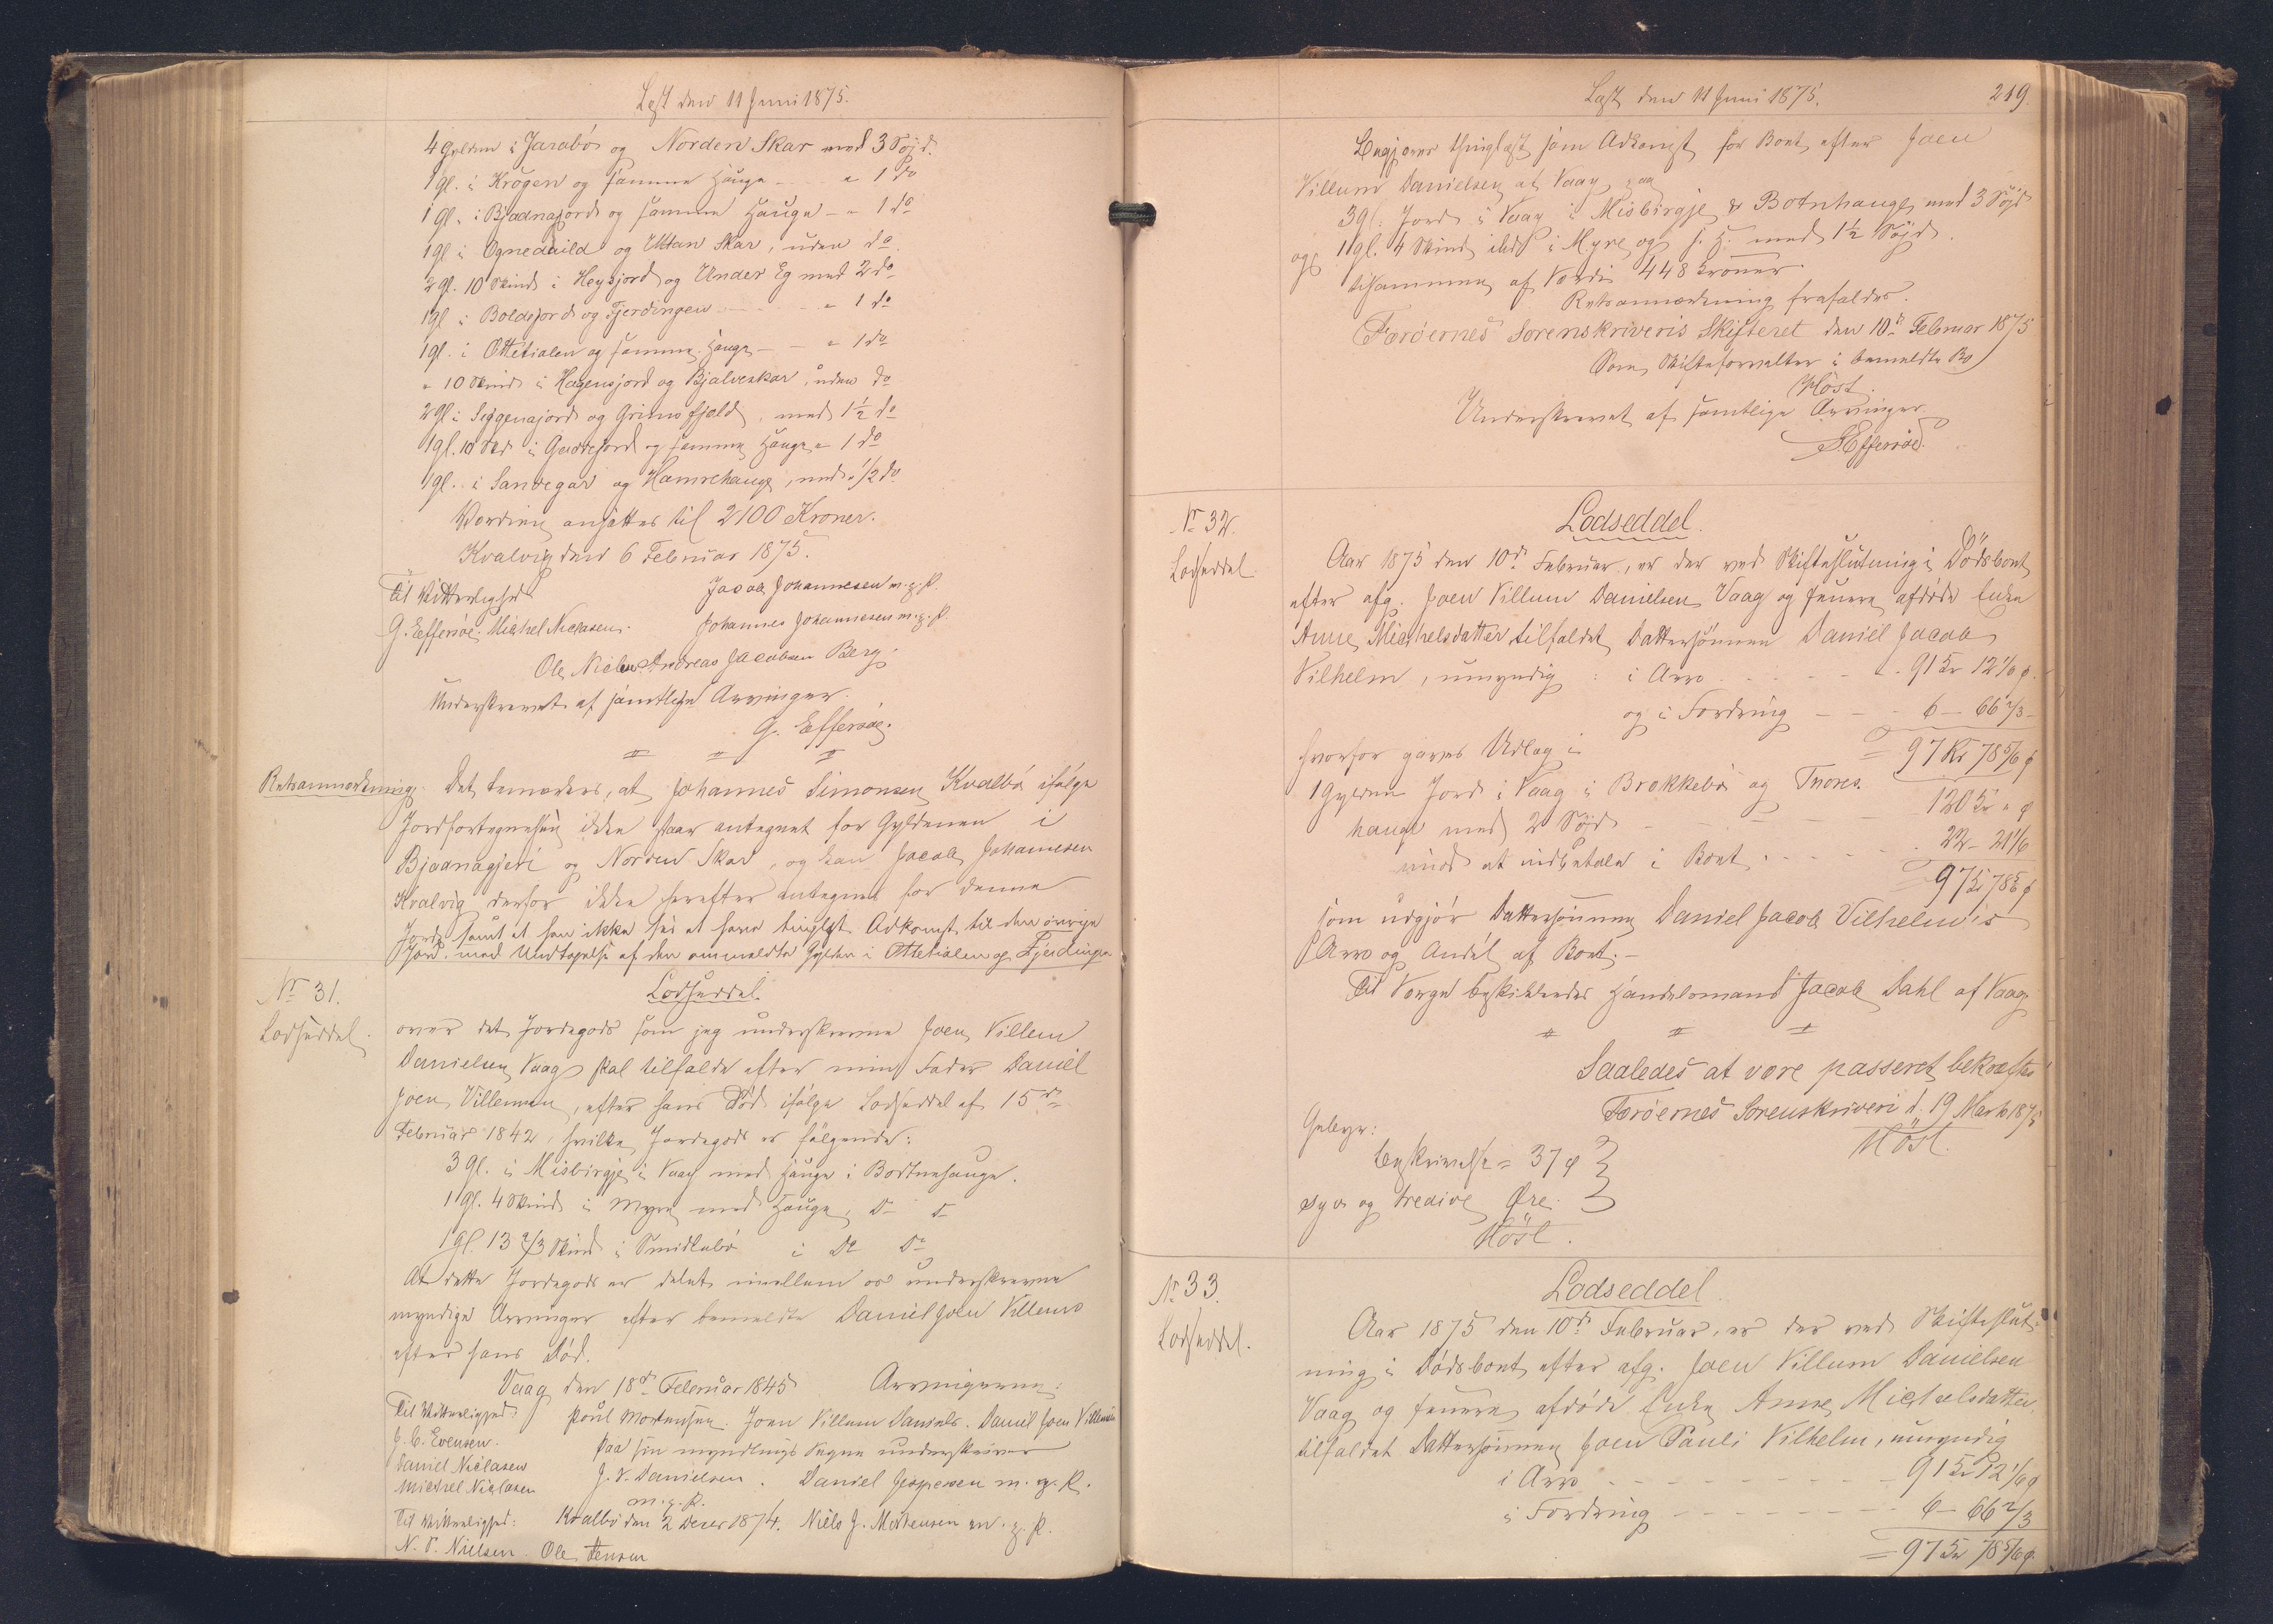 Læst den 11 Juni 1875.
4 Gylden i Jarabö og Norden Skar med 3 Söjd.
1 gl. i Krögen og samme Hauge - " 1 do
1 gl. i Bjadnajord og samme Hauge - " 1 do
1 gl i Ognedeild og Uttan Skar, uden do
2 gl. 10 Skind i Heysjord og Under Eg med 2 do
1 gl i Boldsjord og Fjerdingen - - " 1 do
1 gl. i Ottetialen og samme Hauge - - " 1 do
" 10 Skind i Hagensjord og Bjalveskar, uden do
2 gl. i Seggenajord og Grimsfjeld, med 1½ do
1 gl. 10 Skd i Gerdesjord og samme Hauge " 1 do
1 gl. i Sandegar og Hamrehauge, med ½ do
Værdien ansættes til 2100 Kroner.
Kvalvig den 6 Februar 1875.
Til Vitterlighed Jacob Johannesen m. g. P.
G. Effersöe. Michel Niclasen. Johannes Johannesen m. g. P.
Ole Niclas Andreas Jacobsen Berg.
Underskrevet af samtlige Arvinger.
G. Effersöe.
Retsanmærkning. Det bemærkes, at Johannes Simonsen Kvalbö ifölge
Jordfortegnelsen ikke staar antegnet for Gyldenen i
Bjadnagjeri og Norden Skar, og kan Jacob Johannesen
Kvalvig derfor ikke herefter antegnes for denne
Jord, samt at han ikke sees at have tinglæst Adkomst til den övrige
Jord, med Undtagelse af den ommeldte Gylden i Ottetialen og Fjerdingen
No 31.
Lodseddel.
Lodseddel
over det Jordegods som jeg underskrevne Joen Villem
Danielsen Vaag skal tilfalde efter min Fader Daniel
Joen Villemsen, efter hans Död ifölge Lodseddel af 15de
Februar 1842, hvilke Jordegods er fölgende:
3 gl. i Misbirgje i Vaag med Hauge i Bottnehauge.
1 gl. 4 Skind i Myre med Hauge, do do
1 gl. 13 2/3 Skind i Smidlubö i do do
At dette Jordegods er delet imellem os underskrevne
myndige Arvinger efter bemeldte Daniel Joen Villems
efter hans Död.
Vaag den 18de Februar 1845 Arvingerne:
Til Vitterlighed: Poul Mortensen. Joen Villum Daniels. Daniel Joen Villemsen
J. C. Evensen. Paa sin myndlings Vegne underskriver
Daniel Niclasen J. V. Danielsen. Daniel Jespersen m. g. P.
Michel Niclasen m. g. P.
Til Vitterlighed: Kvalbö den 2 Decer 1874. Niels J. Mortensen m. g. P.
N. P. Nielsen. Ole Jensen
Læst den 11 Juni 1875.
219
Begjæres thinglæst som Adkomst for Boet efter Joen
Villum Danielsen af Vaag paa
3 gl. Jord i Vaag i Misbirgje & Botnhauge med 3 Söjd
og 1 gl. 4 Skind ibd i Myre og s. H. med 1½ Söjd.
tilsammen af Værdi 448 Kroner.
Retsanmærkning frafaldes.
Færöernes Sorenskriveris Skifteret den 10de Februar 1875
Som Skifteforvalter i bemeldte Bo
Höst.
Underskrevet af samtlige Arvinger.
G. Effersöe.
No 32.
Lodseddel
Lodseddel.
Aar 1875 den 10de Februar, er der ved Skifteslutning i Dödsboet
efter afg. Joen Villum Danielsen Vaag og senere afdöde Enke
Anne Michelsdatter tilfaldet Dattersönnen Daniel Jacob
Vilhelm, umyndig: i Arv - - - 91 Kr 12 1/6 ø.
og i Fordring - - - 6 - 66 2/3 -
hvorfor gives Udlæg i = 97 Kr 78 5/6 ø
1 Gylden Jord i Vaag i Brokkebö og Tnores-
hauge med 2 Söjd - - - 120 Kr " ø
mod at indbetale i Boet - - - 22 - 21 1/6
= 97 Kr 78 5/6 ø
som udgjör Dattersönnen Daniel Jacob Vilhelm's
Arv og Andel af Boet. -
Til Værge beskikkedes Handelsmand Jacob Dahl af Vaag
Saaledes at være passeret bekræftes
Færöernes Sorenskriveri d. 19 Marts 1875
Höst.
Gebyr:
Beskrivelse = 37 ø
Syv og tredive Øre.
Höst.
No 33.
Lodseddel.
Lodseddel
Aar 1875 den 10de Februar, er der ved Skifteslut-
ning i Dödsboet efter afg. Joen Villum Danielsen
Vaag og senere afdöde Enke Anne Michelsdatter
tilfaldet Dattersönnen Joen Pauli Vilhelm, umyndig
i Arv - - - 91 Kr 12 1/6 ø
i Fordring - - - 6 - 66 2/3
= 97 Kr 78 5/6 ø.